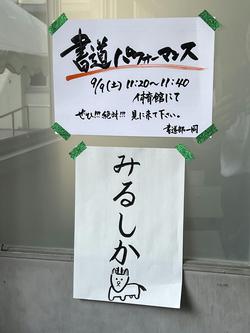 書道パフォーマンス
9/9(土) 11:20〜11:40
体育館にて
ぜひ!!!絶対!!!見に来て下さい。
書道部一同
みるしか